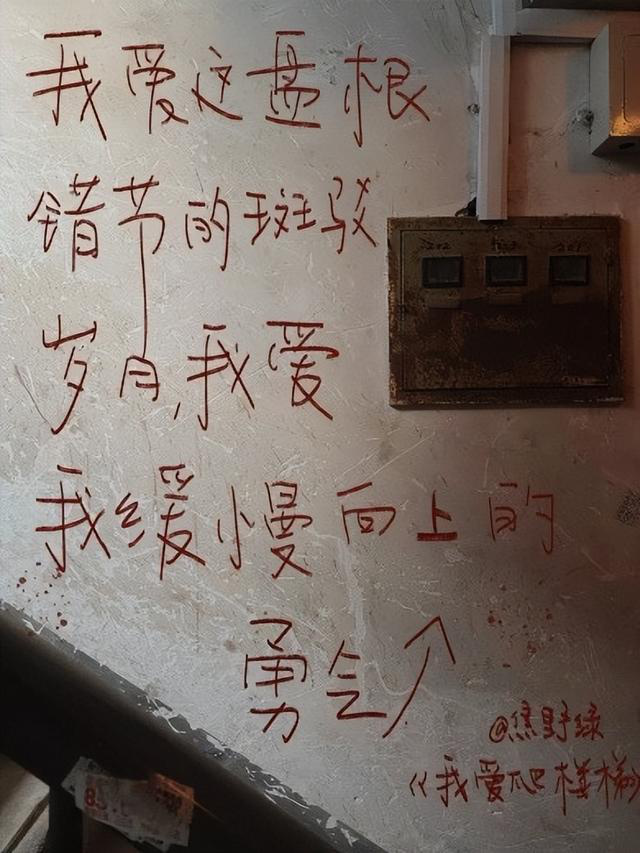 我爱这盘根
错节的斑驳
岁月,我爱
我缓慢向上的
勇气↗
@焦野绿
《我爱爬楼梯》